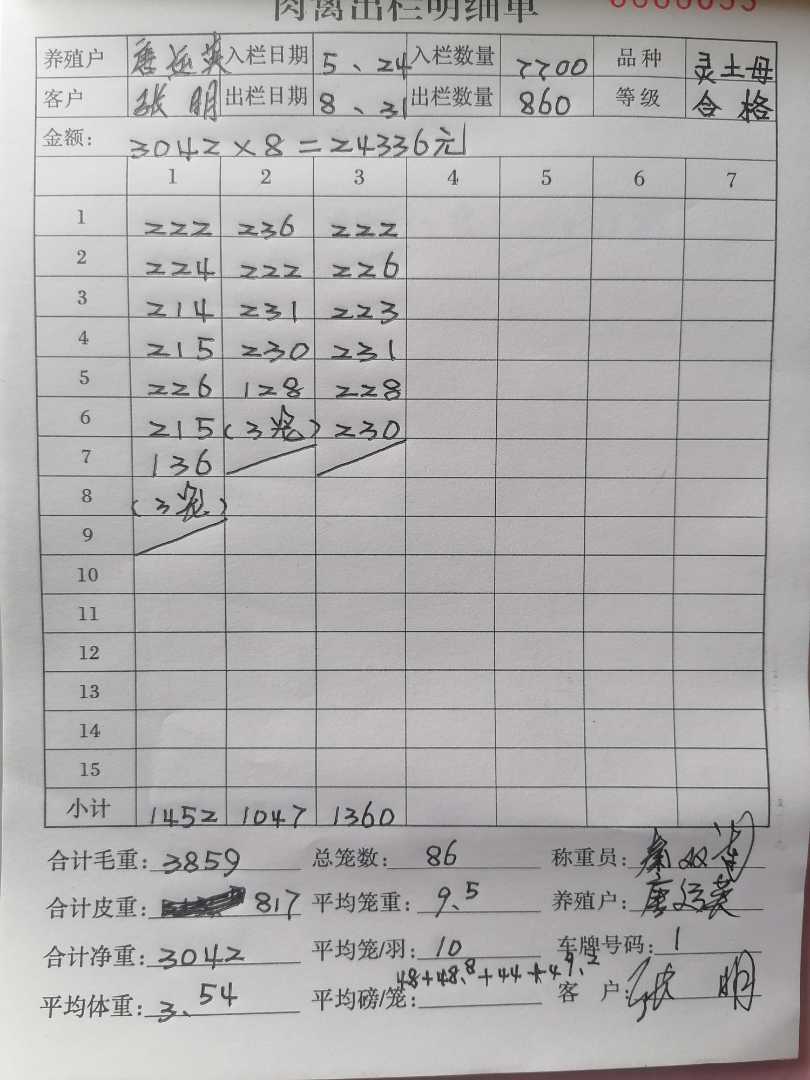 肉禽出栏明细单
养殖户 入栏日期 5、24 入栏数量 7700 品种 灵土母
客户 张明 出栏日期 8、31 出栏数量 860 等级 合格
金额: 3042×8=24336元
1 2 3 4 5 6 7
1 222 236 222
2 224 222 226
3 214 231 223
4 215 230 231
5 226 128 228
6 215 (3笼) 230
7 136
8 (3笼)
9
10
11
12
13
14
15
小计 1452 1047 1360
合计毛重: 3859 总笼数: 86 称重员: 秦双
合计皮重: 817 平均笼重: 9.5 养殖户: 唐
合计净重: 3042 平均笼/羽: 10 车牌号码: 1
平均体重: 3.54 平均磅/笼: 48+48.8+44+49.2 客户: 张明